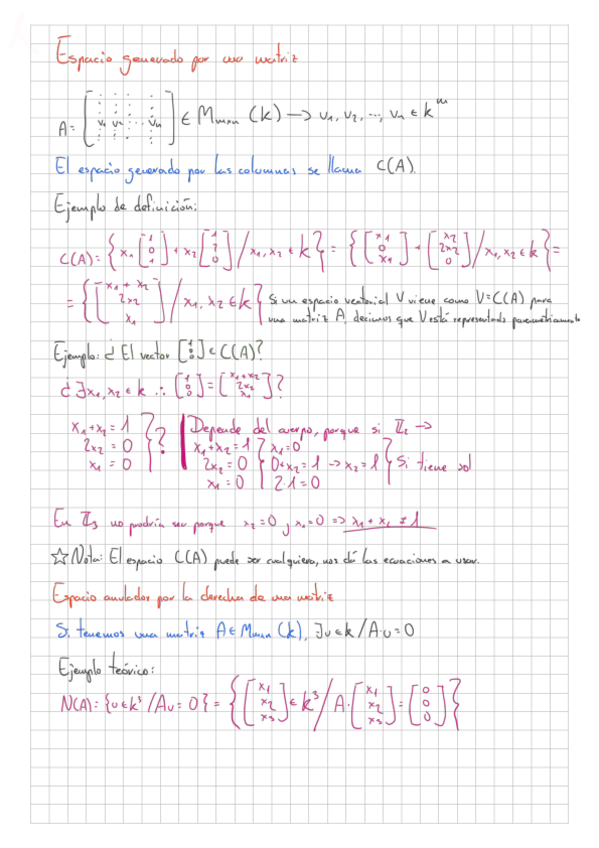 Espacio generado por una matriz
A = [ v₁ v₂ ... vₙ ] ∈ Mₘₓₙ (k) → v₁, v₂, ..., vₙ ∈ kᵐ
El espacio generado por las columnas se llama C(A).
Ejemplo de definición:
C(A): { x₁ [1 0 1] + x₂ [1 2 0] / x₁, x₂ ∈ k } = { [x₁ 0 x₁] + [x₂ 2x₂ 0] / x₁, x₂ ∈ k } =
= { [x₁ + x₂ 2x₂ x₁] / x₁, x₂ ∈ k } Si un espacio vectorial V viene como V=C(A) para
una matriz A, decimos que V está representado paramétricamente
Ejemplo: ¿ El vector [1 0 0] ∈ C(A)?
¿ ∃ x₁, x₂ ∈ k ∴ [1 0 0] = [x₁+x₂ 2x₂ x₁] ?
x₁ + x₂ = 1 } ? Depende del cuerpo, porque si ℤ₂ →
2x₂ = 0 x₁ + x₂ = 1 } x₁ = 0
x₁ = 0 2x₂ = 0 } 0 + x₂ = 1 → x₂ = 1 } Si tiene sol
x₁ = 0 2·1 = 0
En ℤ₃ no podría ser porque x₂ = 0 y x₁ = 0 => x₁ + x₂ ≠ 1
☆ Nota: El espacio C(A) puede ser cualquiera, nos dá las ecuaciones a usar.
Espacio anulador por la derecha de una matriz
Si tenemos una matriz A ∈ Mₘₓₙ (k), ∃ u ∈ k / A·u = 0
Ejemplo teórico:
N(A): {u ∈ k³ / Au = 0} = { [x₁ x₂ x₃] ∈ k³ / A· [x₁ x₂ x₃] = [0 0 0] }